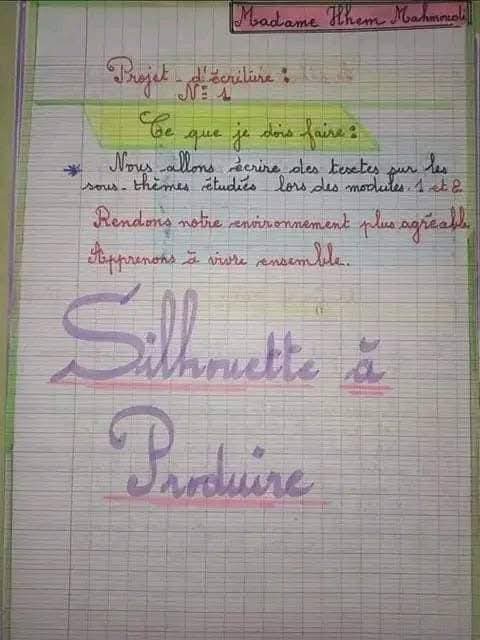 Madame Ilhem Mahmoudi
Projet - d'écriture :
N= 1
Ce que je dois faire :
* Nous allons écrire des textes sur les
sous-thèmes étudiés lors des modules 1 et 2
Rendons notre environnement plus agréable
Apprenons à vivre ensemble.
Silhouette à
Produire